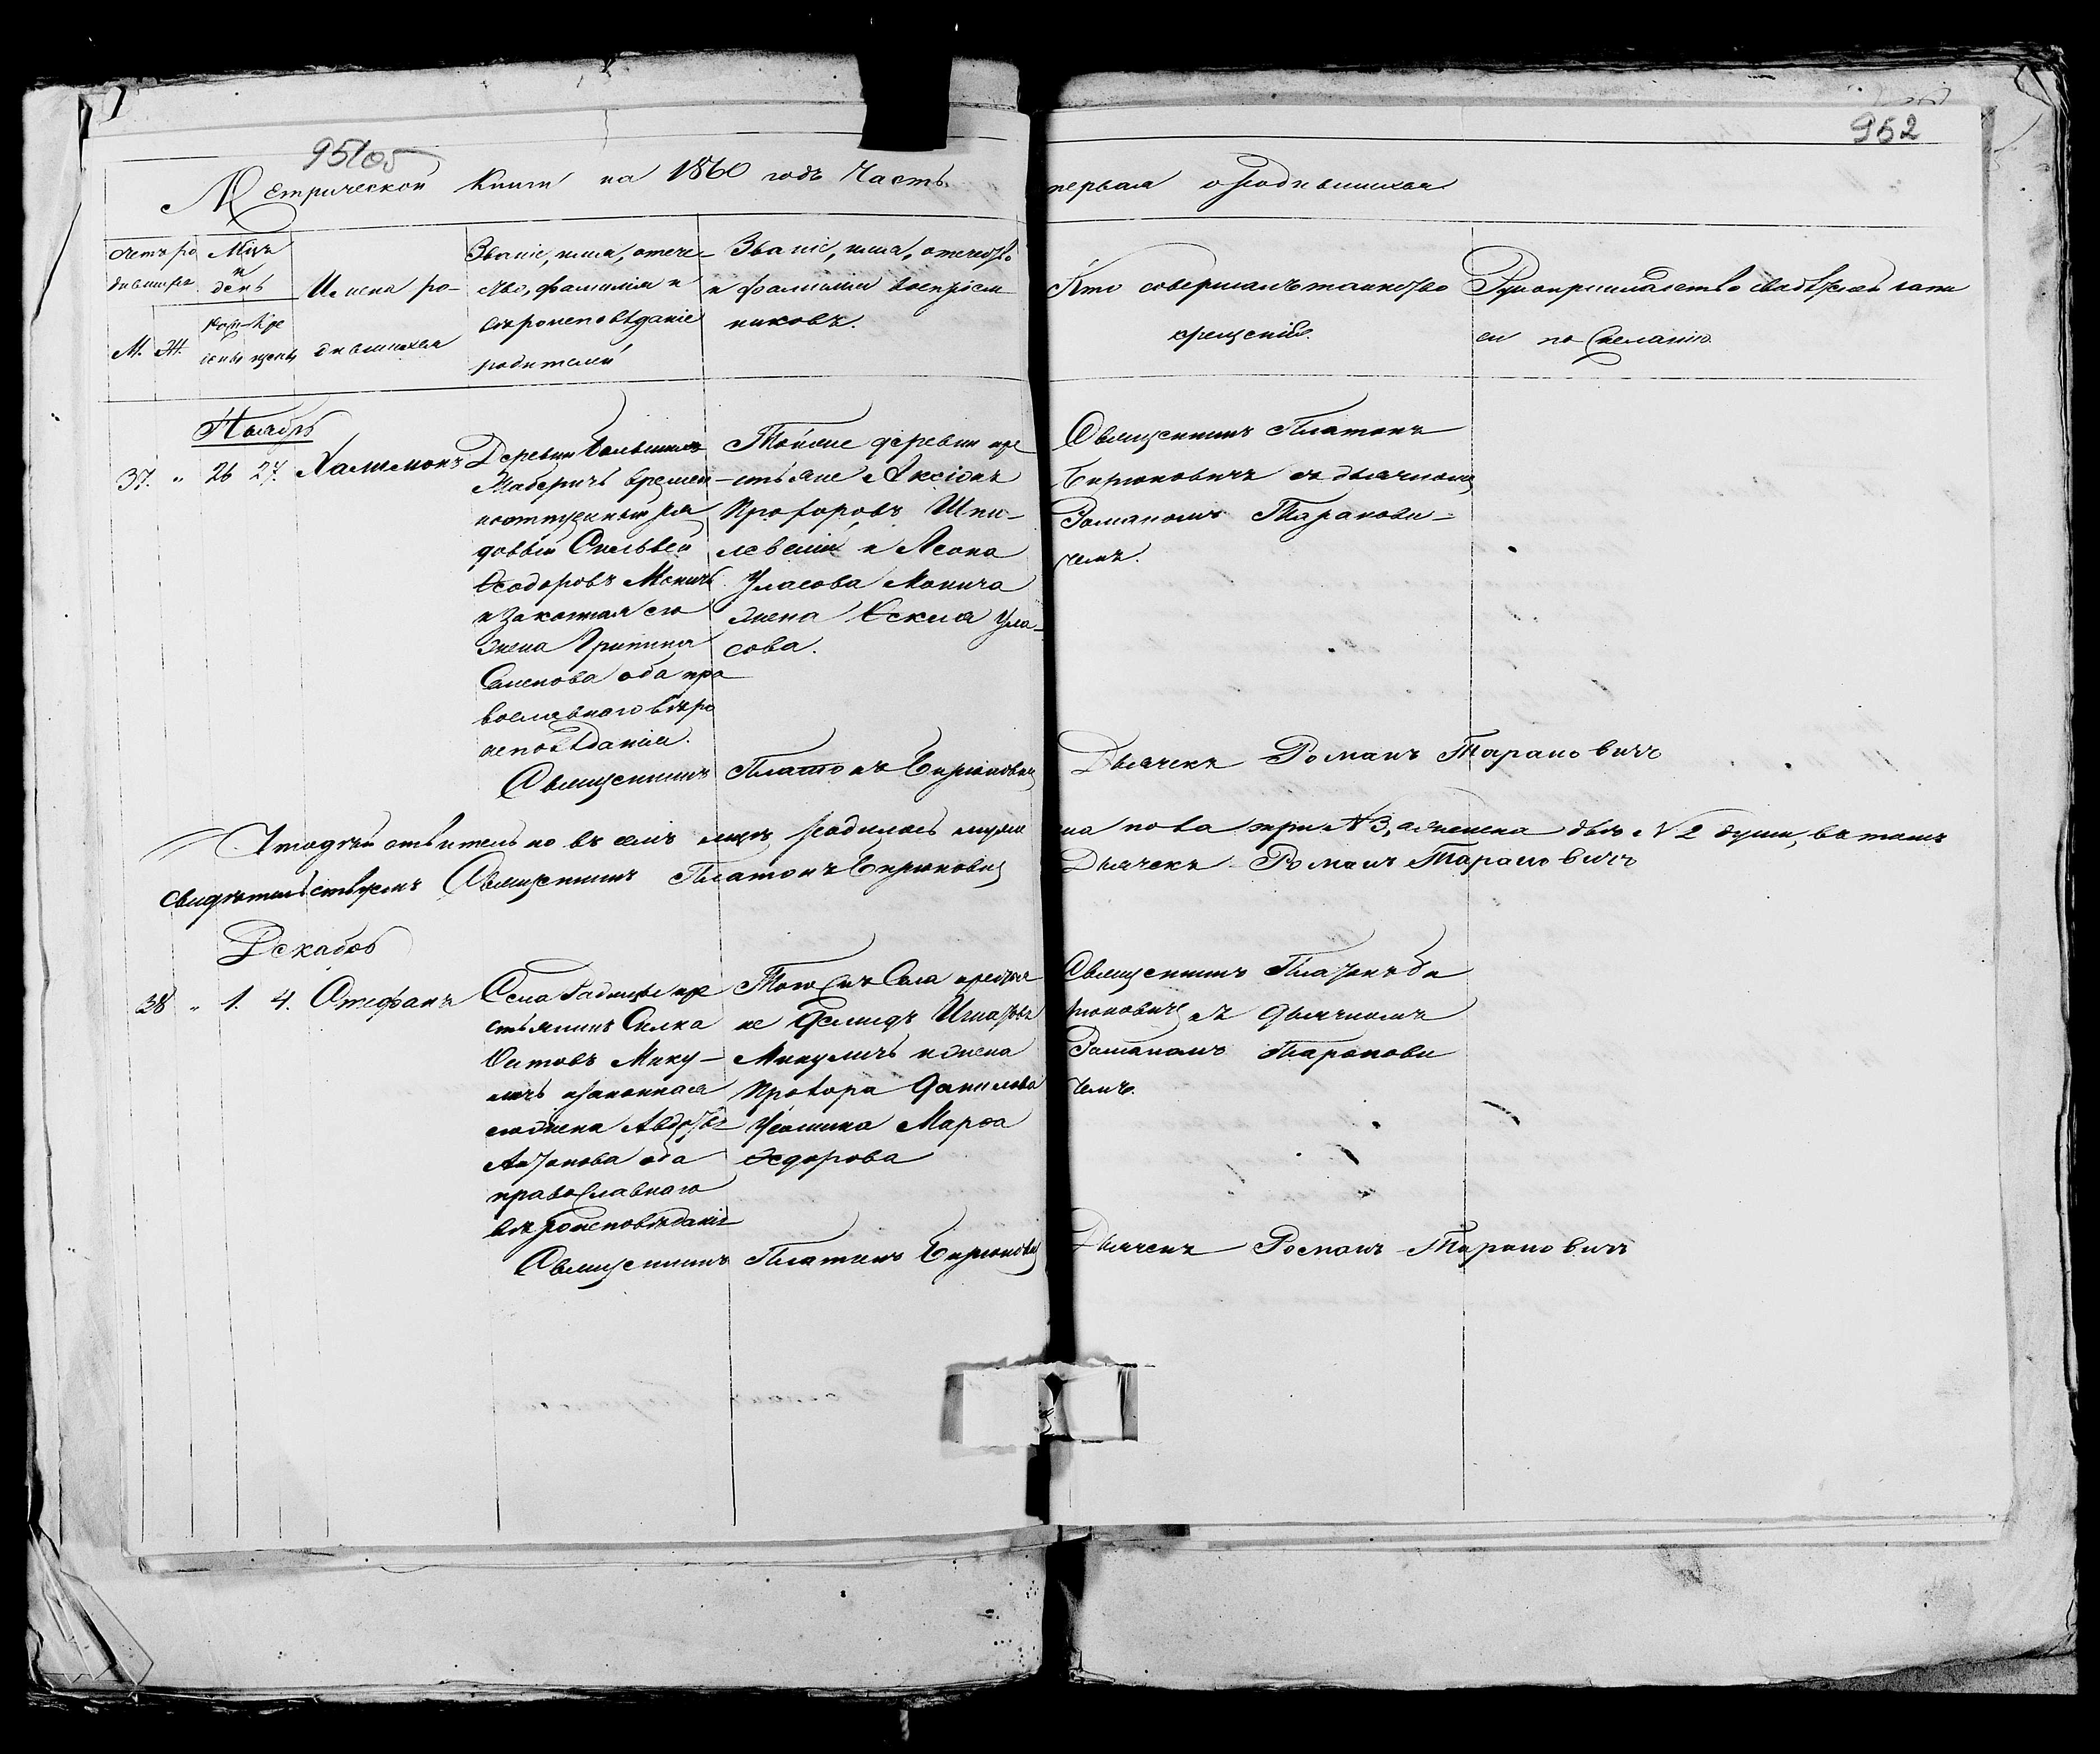 951об
952
Метрической Книги на 1860 годъ Часть первая о родившихся
Счетъ ро
дившихся
М. Ж.
Мцъ
и
день
рож
денія
кре
щенія
Имена ро-
дившихся
Званіе, имя, отече-
ство, фамилія и
вѣроисповѣданіе
родителей
Званіе, имя, отечество
и фамилія воспріем
никовъ.
Кто совершалъ таинство
крещенія.
Рукоприкладство свидѣтелей запи
си по желанію
Ноябрь
37. " 26 27. Халимонъ
Деревни
временно
Ѳеодоровъ
и законная его
жена Грипина
Семенова оба пра
вославнаго вѣро
исповѣданія.
Тойже деревни кре
стьяне
Прохоровъ
и
Уласова
жена Ула-
сова.
Священникъ Платонъ
Бирюковичъ съ дьячкомъ
Романомъ Таранови-
чемъ.
Священникъ Платонъ Бирюковичъ
Дьячекъ Романъ Тарановичъ
Что дѣйствительно въ семъ мцѣ родилось мужеска пола три №3, а женска двѣ №2 души, въ томъ
свидѣтельствуемъ Священникъ Платонъ Бирюковичъ Дьячекъ Романъ Тарановичъ
Декабрь
38 " 1. 4. Стефанъ
Села кре
стьянинъ
Титовъ Мику-
личъ и законная
его жена Авдотья
Антонова оба
православнаго
вѣроисповѣданія
Того жъ Села крестья
не Демидъ Игнатовъ
Микуличъ и жена
Прохора Данилова
Марѳа
Ѳедорова
Священникъ Платонъ Би
рюковичъ съ дьячкомъ
Романомъ Таранови
чемъ.
Священникъ Платонъ Бирюковичъ
Дьячекъ Романъ Тарановичъ